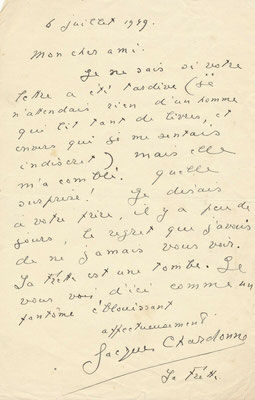 6 juillet 1959.
Mon cher ami.
Je ne sais si votre
lettre a été tardive (je
n'attendais rien d'un homme
qui lit tant de livres, et
envers qui je me sentais
indiscret) mais elle
m'a comblé. quelle
surprise! Je disais
à votre père, il y a peu de
jours, le regret que j'avais
de ne jamais vous voir.
La Frette est une tombe. Je
vous vois d'ici comme un
fantôme éblouissant
affectueusement.
Jacques Chardonne
La Frette